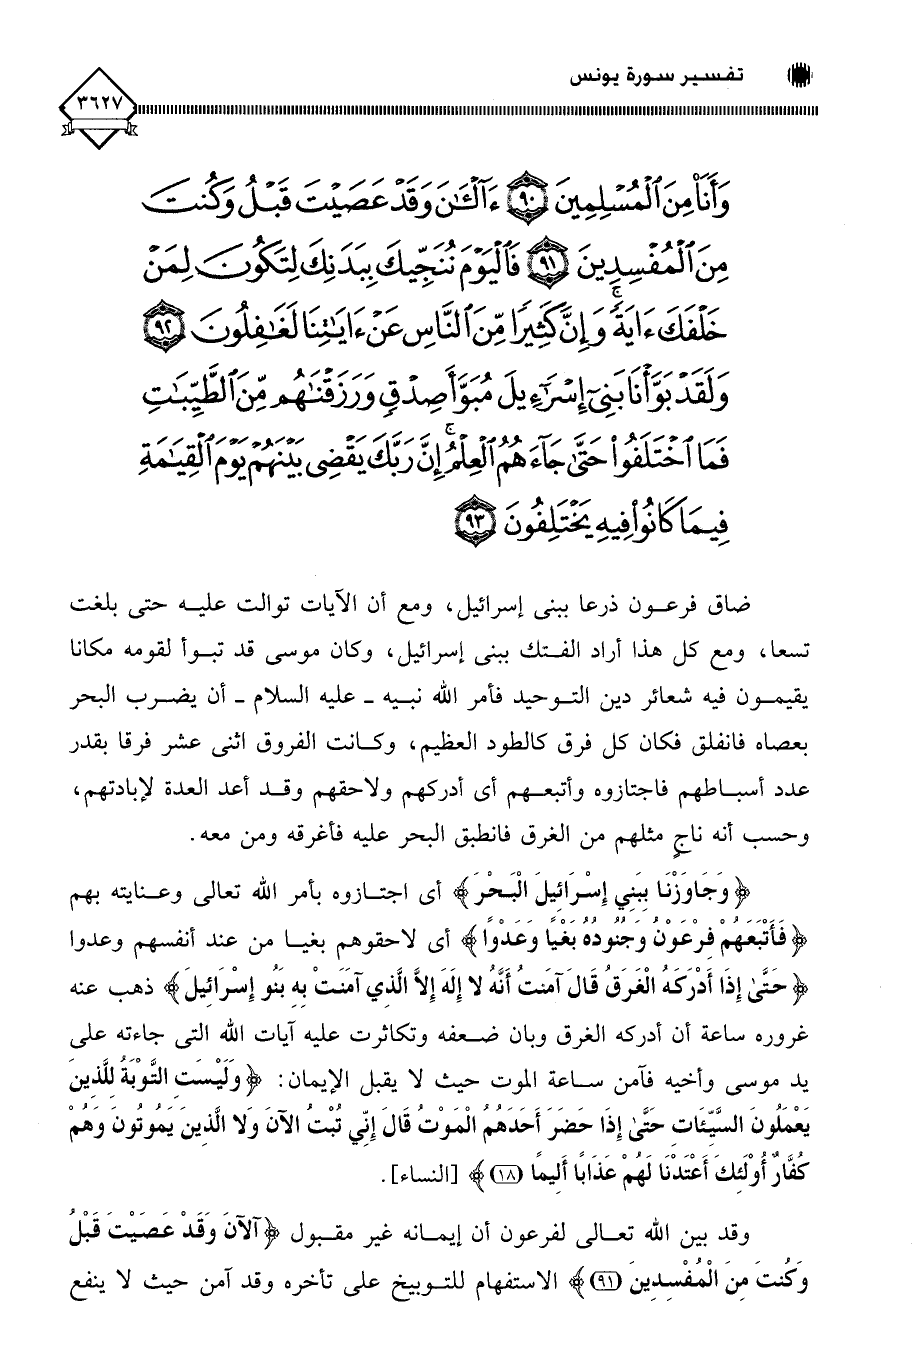 تفسير سورة يونس
٣٦٢٧
وَأَنَا۠ مِنَ ٱلْمُسْلِمِينَ ٩٠ ءَآلْـَٰٔنَ وَقَدْ عَصَيْتَ قَبْلُ وَكُنتَ
مِنَ ٱلْمُفْسِدِينَ ٩١ فَٱلْيَوْمَ نُنَجِّيكَ بِبَدَنِكَ لِتَكُونَ لِمَنْ
خَلْفَكَ ءَايَةً ۚ وَإِنَّ كَثِيرًا مِّنَ ٱلنَّاسِ عَنْ ءَايَٰتِنَا لَغَٰفِلُونَ ٩٢
وَلَقَدْ بَوَّأْنَا بَنِىٓ إِسْرَٰٓءِيلَ مُبَوَّأَ صِدْقٍ وَرَزَقْنَٰهُم مِّنَ ٱلطَّيِّبَٰتِ
فَمَا ٱخْتَلَفُوا۟ حَتَّىٰ جَآءَهُمُ ٱلْعِلْمُ ۚ إِنَّ رَبَّكَ يَقْضِى بَيْنَهُمْ يَوْمَ ٱلْقِيَٰمَةِ
فِيمَا كَانُوا۟ فِيهِ يَخْتَلِفُونَ ٩٣
ضاق فرعون ذرعا ببنى إسرائيل، ومع أن الآيات توالت عليه حتى بلغت
تسعا، ومع كل هذا أراد الفتك ببنى إسرائيل، وكان موسى قد تبوأ لقومه مكانا
يقيمون فيه شعائر دين التوحيد فأمر الله نبيه - عليه السلام - أن يضرب البحر
بعصاه فانفلق فكان كل فرق كالطود العظيم، وكانت الفروق اثنى عشر فرقا بقدر
عدد أسباطهم فاجتازوه وأتبعهم أى أدركهم ولاحقهم وقد أعد العدة لإبادتهم،
وحسب أنه ناجٍ مثلهم من الغرق فانطبق البحر عليه فأغرقه ومن معه.
﴿وَجَاوَزْنَا بِبَنِي إِسْرَائِيلَ الْبَحْرَ﴾ أى اجتازوه بأمر الله تعالى وعنايته بهم
﴿فَأَتْبَعَهُمْ فِرْعَوْنُ وَجُنُودُهُ بَغْيًا وَعَدْوًا﴾ أى لاحقوهم بغيا من عند أنفسهم وعدوا
﴿حَتَّىٰ إِذَا أَدْرَكَهُ الْغَرَقُ قَالَ آمَنتُ أَنَّهُ لا إِلَهَ إِلاَّ الَّذِي آمَنَتْ بِهِ بَنُو إِسْرَائِيلَ﴾ ذهب عنه
غروره ساعة أن أدركه الغرق وبان ضعفه وتكاثرت عليه آيات الله التى جاءته على
يد موسى وأخيه فآمن ساعة الموت حيث لا يقبل الإيمان: ﴿وَلَيْسَتِ التَّوْبَةُ لِلَّذِينَ
يَعْمَلُونَ السَّيِّئَاتِ حَتَّىٰ إِذَا حَضَرَ أَحَدَهُمُ الْمَوْتُ قَالَ إِنِّي تُبْتُ الآنَ وَلا الَّذِينَ يَمُوتُونَ وَهُمْ
كُفَّارٌ أُوْلَئِكَ أَعْتَدْنَا لَهُمْ عَذَابًا أَلِيمًا (١٨)﴾ [النساء].
وقد بين الله تعالى لفرعون أن إيمانه غير مقبول ﴿آلآنَ وَقَدْ عَصَيْتَ قَبْلُ
وَكُنتَ مِنَ الْمُفْسِدِينَ (٩١)﴾ الاستفهام للتوبيخ على تأخره وقد آمن حيث لا ينفع